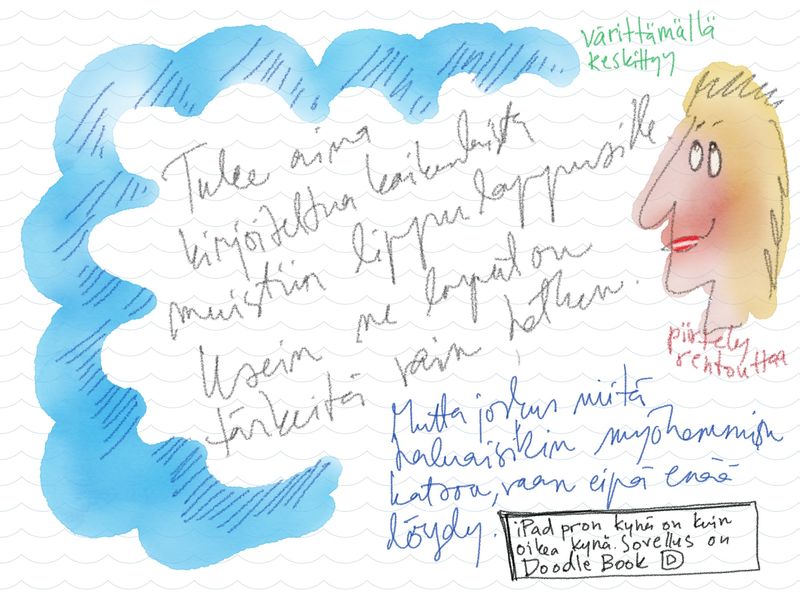 värittämällä
keskittyy
Tulee aina
kirjoiteltua kaikenlaista
muistiin lippulappusille
Usein ne laput on
tärkeitä vain hetken.
piirtely
rentouttaa
Mutta joskus niitä
haluaisikin myöhemmin
katsoa, vaan eipä enää
löydy.
iPad pron kynä on kuin
oikea kynä. Sovellus on
Doodle Book D